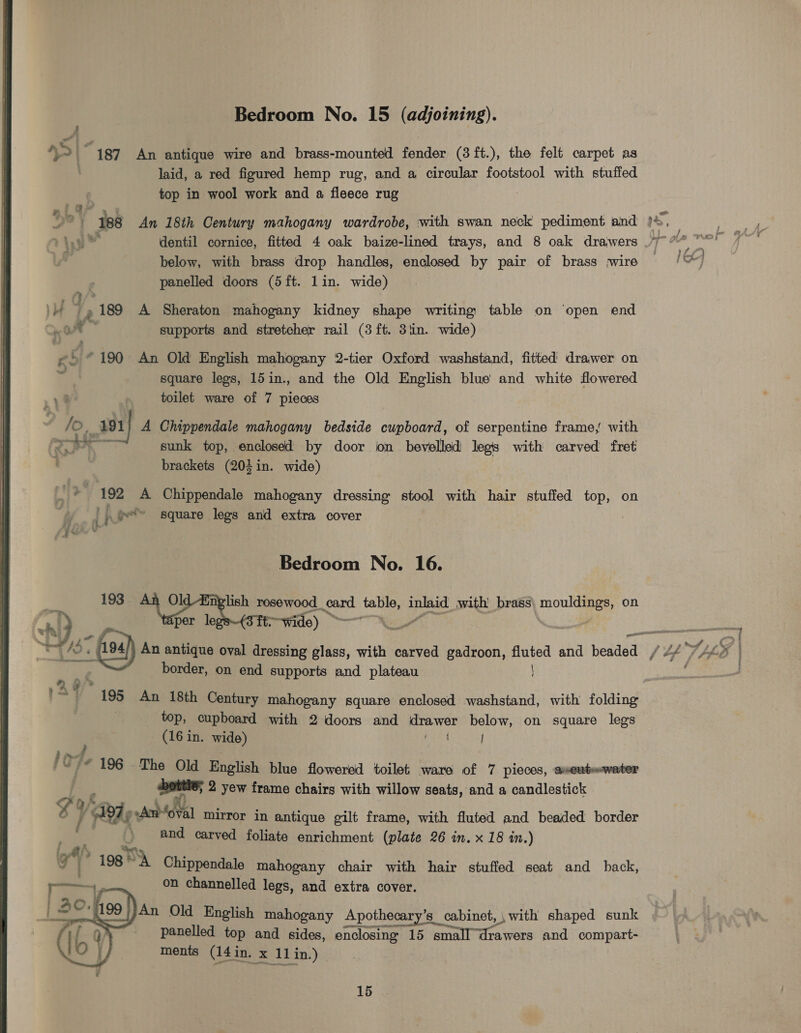 Bedroom No. 15 (adjoining).
187 An antique wire and brass-mounted fender (3 ft.), the felt carpet as
laid, a red figured hemp rug, and a circular footstool with stuffed
top in wool work and a fleece rug
188 An 18th Century mahogany wardrobe, with swan neck pediment and
dentil cornice, fitted 4 oak baize-lined trays, and 8 oak drawers
below, with brass drop handles, enclosed by pair of brass wire
panelled doors (5 ft. 1 in. wide)
189 A Sheraton mahogany kidney shape writing table on open end
supports and stretcher rail (3 ft. 3 in. wide)
190 An Old English mahogany 2-tier Oxford washstand, fitted drawer on
square legs, 15 in., and the Old English blue and white flowered
toilet ware of 7 pieces
191 A Chippendale mahogany bedside cupboard, of serpentine frame, with
sunk top, enclosed by door on bevelled legs with carved fret
brackets (20½ in. wide)
192 A Chippendale mahogany dressing stool with hair stuffed top, on
square legs and extra cover
Bedroom No. 16.
193 An Old English rosewood card table, inlaid with brass mouldings, on
taper legs (3 ft. wide)
15. 194 An antique oval dressing glass, with carved gadroon, fluted and beaded
border, on end supports and plateau
195 An 18th Century mahogany square enclosed washstand, with folding
top, cupboard with 2 doors and drawer below, on square legs
(16 in. wide)
196 The Old English blue flowered toilet ware of 7 pieces, a cut water
bottle, 2 yew frame chairs with willow seats, and a candlestick
197 An oval mirror in antique gilt frame, with fluted and beaded border
and carved foliate enrichment (plate 26 in. x 18 in.)
198 A Chippendale mahogany chair with hair stuffed seat and back,
on channelled legs, and extra cover.
30. 199 An Old English mahogany Apothecary's cabinet, with shaped sunk
panelled top and sides, enclosing 15 small drawers and compart-
ments (14 in. x 11 in.)
15